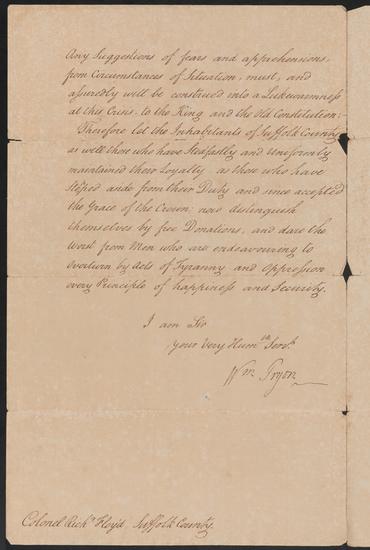 Any Suggestions of fears and apprehensions,
from Circumstances of Situation, must, and
assuredly will be construed into a Lukewarmness
at this Crisis, to the King and the Old Constitution:
Therefore let the Inhabitants of Suffolk County
as well those who have Stedfastly and Uniformly
maintained their Loyalty as those who have
steped aside from their Duty and since accepted
the Grace of the Crown; now distinguish
themselves by free Donations, and dare the
Worst from Men who are endeavouring to
Overturn by Acts of Tyranny and Oppression
every Principle of happiness and Security.
I am Sir
Your Very Humble Servt
Wm Tryon
Colonel Richd Floyd Suffolk County.